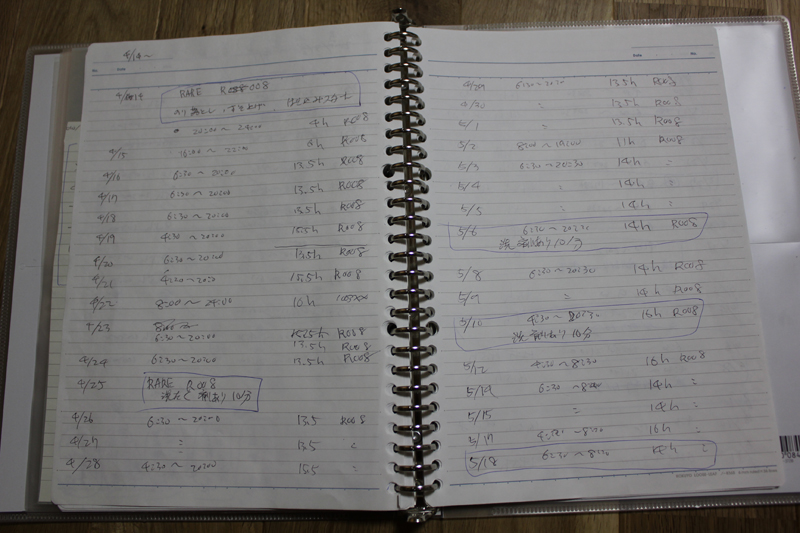 4/14~
4/14 RARE R008
のり落とし
20:00~24:00 4h R008
4/15 16:00~22:00 6h R008
4/16 6:30~20:00 13.5h R008
4/17 6:30~20:00 13.5h R008
4/18 R008
4/19 4:30~20:00 15.5h R008
4/20 6:30~20:00 13.5h R008
4/21 4:30~20:00 15.5h R008
4/22 8:00~24:00 16h
4/23
6:30~20:00 R008
13.5h R008
4/24 6:30~20:00 13.5h R008
4/25 RARE R008
洗たく 洗剤あり 10分
4/26 6:30~20:00 13.5 R008
4/27 〃 13.5 〃
4/28 4:30~20:00 15.5 〃
4/29 6:30~20:00 13.5h R008
4/30 〃 13.5h R008
5/1 〃 13.5h R008
5/2 8:00~19:00 11h R008
5/3 6:30~20:30 14h 〃
5/4 〃 14h 〃
5/5 〃 14h 〃
5/6 6:30~20:30 14h R008
洗剤あり 10分
5/8 6:30~20:30 14h R008
5/9 〃 14h R008
5/10 4:30~20:30 16h R008
洗剤あり 10分
5/12 4:30~8:30 16h R008
5/14 6:30~ 14h 〃
5/15 〃 14h 〃
5/17 4:30~8:30 16h 〃
5/18 6:30~8:30 14h 〃